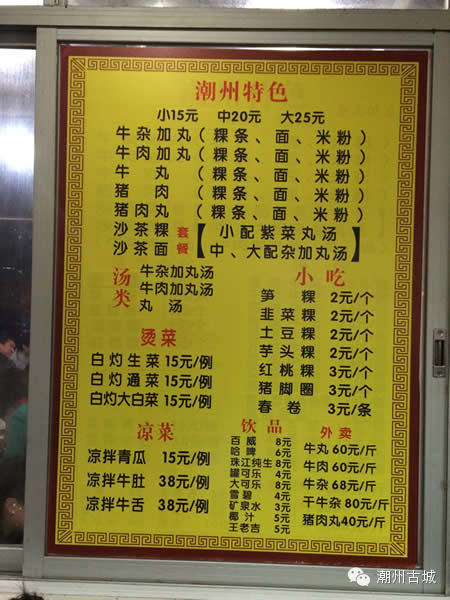 潮州特色
小15元 中20元 大25元
牛杂加丸（粿条、面、米粉）
牛肉加丸（粿条、面、米粉）
牛 丸（粿条、面、米粉）
猪 肉（粿条、面、米粉）
猪肉丸（粿条、面、米粉）
沙茶粿 套 【小配紫菜丸汤
沙茶面 餐 中、大配杂加丸汤】
汤类
牛杂加丸汤
牛肉加丸汤
丸 汤
小吃
笋 粿 2元/个
韭菜粿 2元/个
土豆粿 2元/个
芋头粿 2元/个
红桃粿 3元/个
猪脚圈 3元/个
春 卷 3元/条
烫菜
白灼生菜 15元/例
白灼通菜 15元/例
白灼大白菜 15元/例
凉菜
凉拌青瓜 15元/例
凉拌牛肚 38元/例
凉拌牛舌 38元/例
饮品
百 威 8元
哈 啤 6元
珠江纯生 8元
罐可乐 4元
大可乐 8元
雪 碧 4元
矿泉水 3元
椰 汁 5元
王老吉 5元
外卖
牛丸 60元/斤
牛肉 60元/斤
牛杂 68元/斤
干牛杂 80元/斤
猪肉丸 40元/斤
潮州古城